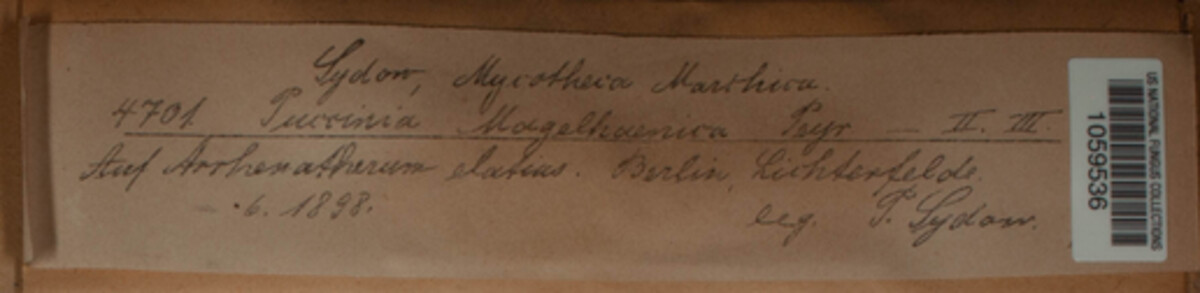 Sydow, Mycotheca Marchica.
4701 Puccinia Magelhaenica Peyr — II. III.
Auf Arrhenatherum elatius. Berlin, Lichterfelde.
— . 6. 1898.
leg. P. Sydow.
US NATIONAL FUNGUS COLLECTIONS
1059536